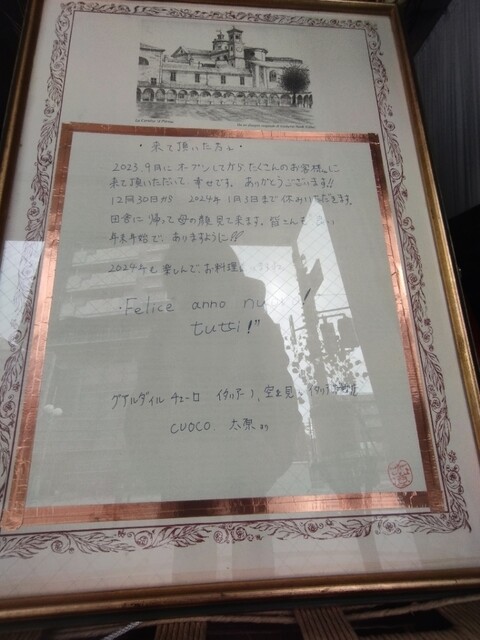 ・来て頂いた方へ
2023.9月にオープンしてから たくさんのお客様に
来て頂いただいて 幸せです。ありがとうございます!!
12月30日から 2024年 1月5日まで休みいただきます。
田舎に帰って母の顔見て来ます。皆さんも
年末年始で、ありますように
2024年も楽しんで、お料理
"Felice anno
tutti!"
グアルダイル チェーロ イタリアーノ、空を見
CUOCO 太梨より